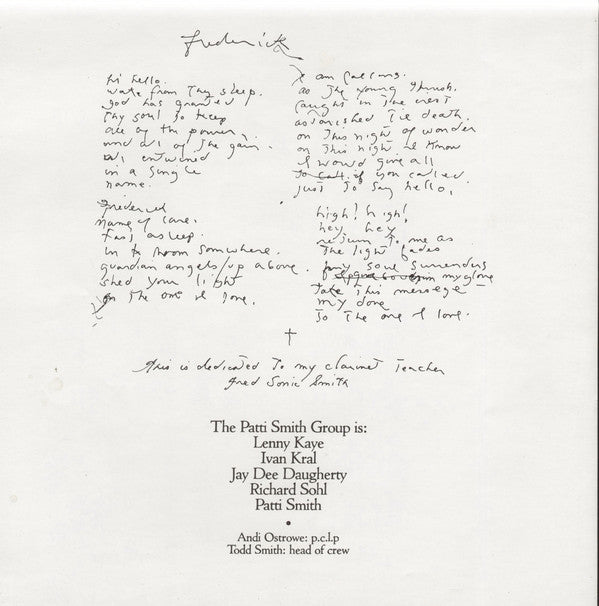 frederick
hi hello.
wake from thy sleep.
god has granted
thy soul to keep
all of the power.
and all of the gain.
all entwined
in a single
name.
frederick
name of care.
fast asleep.
in a room somewhere.
guardian angels/up above.
shed your light
on the one I love.
I am calling.
as the young thrush.
caught in the crest
astonished til death.
on this night of wonder
on this night I know
I would give all
to call. if you called.
just to say hello.
high! high!
hey hey
return to me as
the light fades
my soul surrenders
my glove
take this message
my dove
to the one I love.
†
this is dedicated to my clarinet teacher
fred sonic smith
The Patti Smith Group is:
Lenny Kaye
Ivan Kral
Jay Dee Daugherty
Richard Sohl
Patti Smith
•
Andi Ostrowe: p.c.l.p
Todd Smith: head of crew